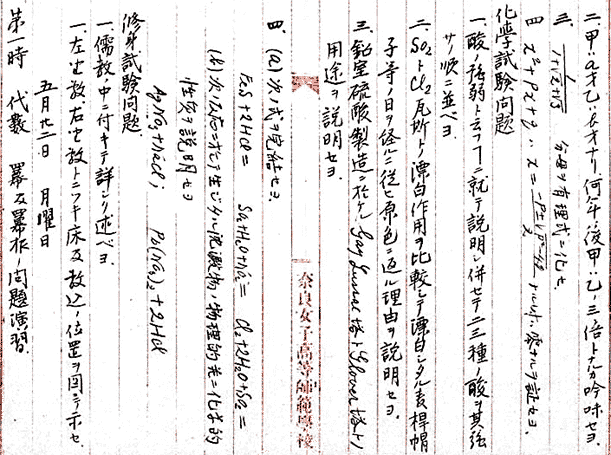 二、甲ハa才乙ハb才ナリ、何年ノ後甲ハ乙ノ三倍トナルカ吟味セヨ.
三、1/(1+√2+√3) 分母ヲ有理式ニ化セ.
四 x²+Px+q, x=(-P±√P²-4q)/2 トルトキ、零ナルヲ証セヨ.
化学試験問題
一、酸ノ強弱ト云フコニ就テ説明シ併セテ二三種ノ酸ヲ其強
サノ順ニ並ベヨ.
二、SO₂トCl₂瓦斯トノ漂白作用ヲ比較シテ漂白シタル麦桿帽
子等ノ日ヲ経ルニ従ヒ原色ニ返ル理由ヲ説明セヨ.
三、鉛室硫酸製造ニ於ケル Gay Lussac 塔ト Glover 塔トノ
用途ヲ説明セヨ.
奈良女子高等師範学校
四、(a) 次ノ式ヲ完結セヨ.
FeS+2HCl=  Cl₂+2H₂O+SO₂=
(b) 次ノ反応ニ於テ生ジタル沈澱物ノ物理的并ニ化学的
性質ヲ説明セヨ
AgNO₃+NaCl; Pb(NO₃)₂+2HCl
修身試験問題
一、儒教ノ中ニ付キテ詳シク述ベヨ.
一、左ノ数、右ノ数トニツキ床及教込ノ位置ヲ図ニテ示セ
五月廿二日 月曜日
第一時 代数 冪及冪根ノ問題演習.